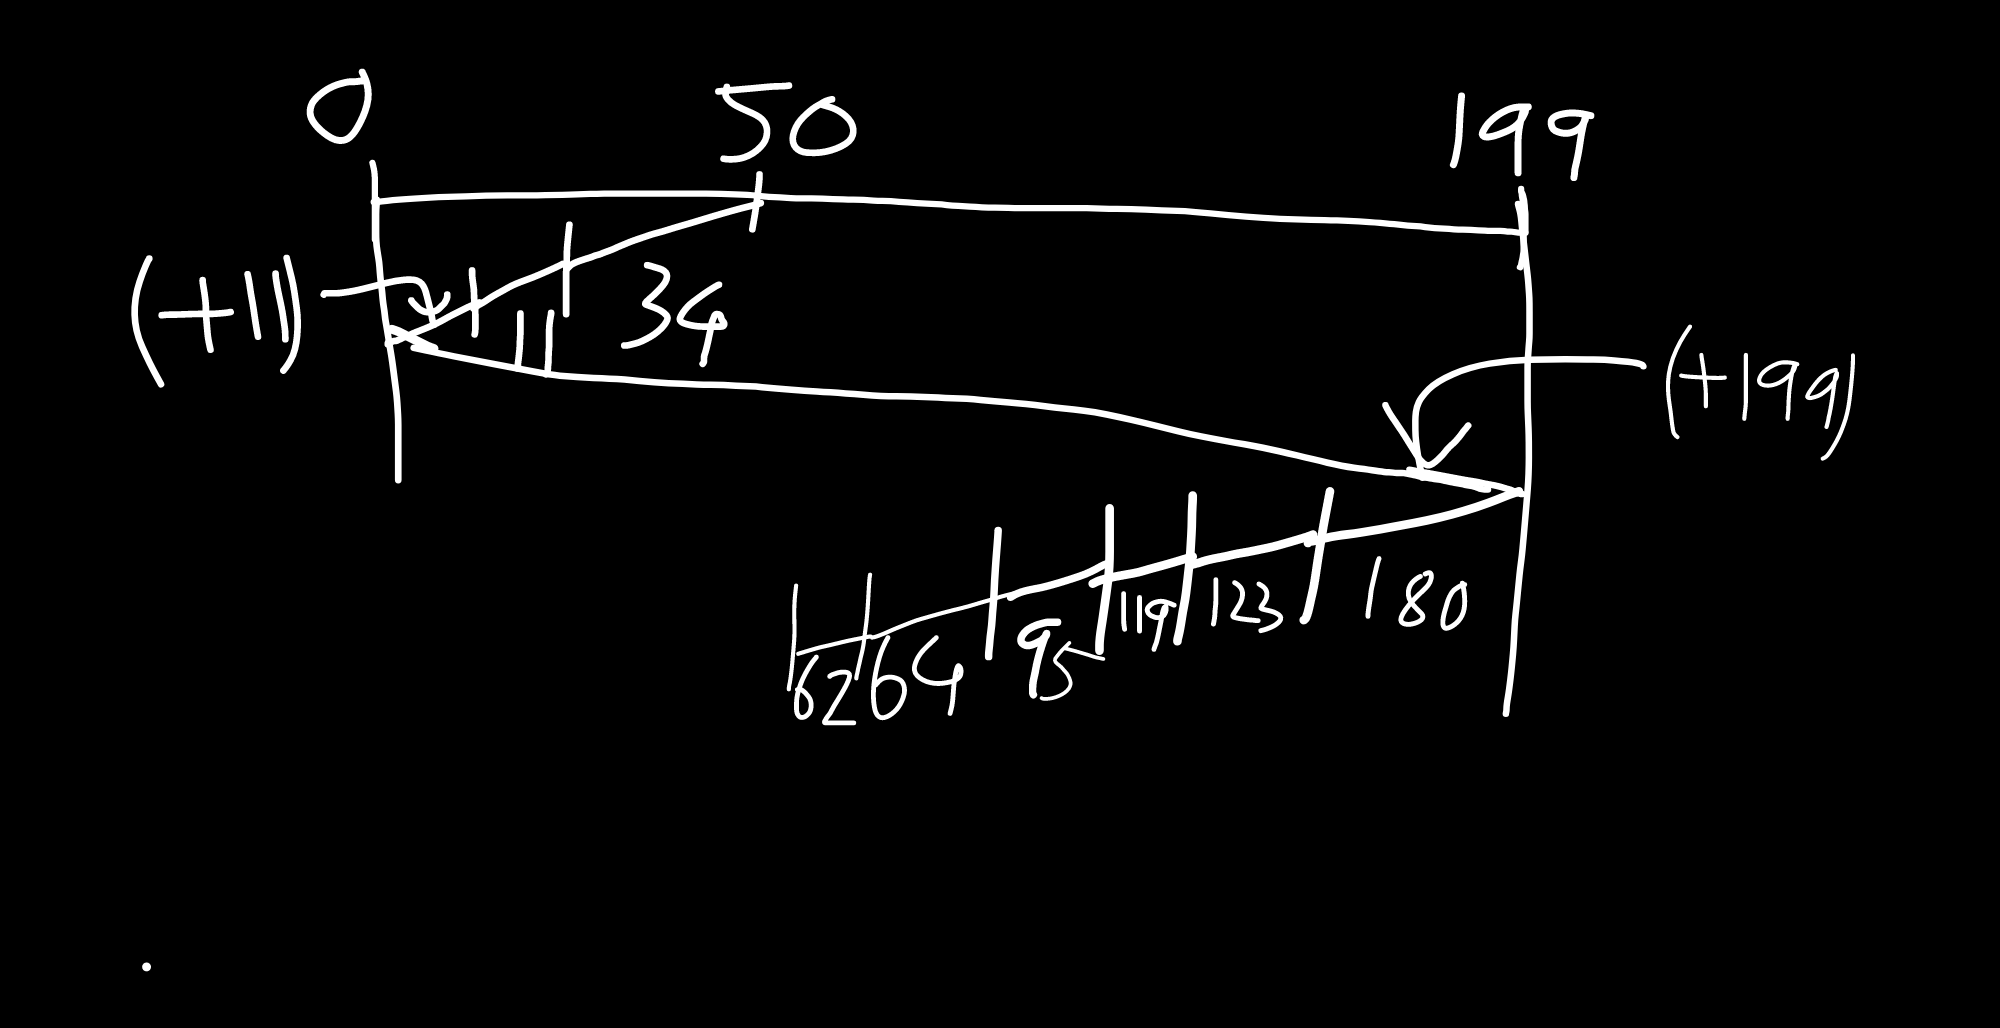 0 50 199
(+11)
11 34
(+199)
62 64 95 119 123 180